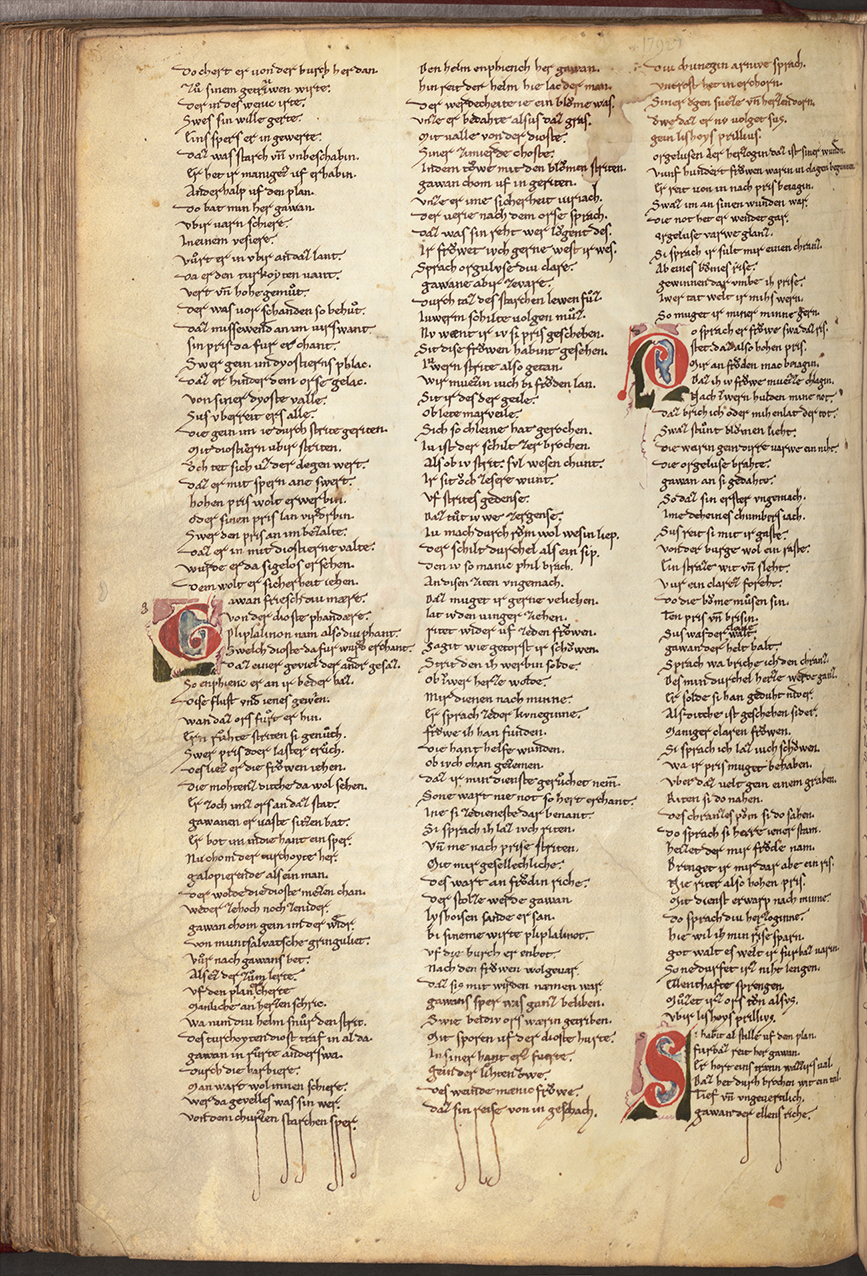 do chert er von der burch her dan.
zů sinem getrůwen wirte.
Der in des wenic irte.
Swes sin wille gerte.
Eins spers er in gewerte.
Daz was starch vñ vnbeschabin.
Er het ir maniger vf erhabin.
Anderhalp vf den plan.
Do bat min her gawan.
vbir varn schiere.
In einem vesiere.
vůrt er in vbir an daz lant.
Da er den turkoyten vant.
vert vñ hohe gemůt.
der was vor schanden so behůt.
daz missewend an im virswant
sin pris da fur er chant.
Swer gein im dyostierns phlac.
daz er hinder dem orse gelac.
von siner dyoste valle.
Sus vberreit ers alle.
die gein im ie durch strite geriten.
Mit diostiern vbir striten.
Och tet sich vz der degen wert.
daz er mit spern ane swert.
hohen pris wolt erwerbin.
Oder sinen pris lan virdrbin.
Swer den pris an im bezalte.
daz er in mit diostierne valte.
wurde er da sigelos ersehen.
dem wolt er sicherheit iehen.
Gawan friesch diu mære.
von der dioste phandære.
Pliplalinon nam also diu phant.
Swelch dioste da fur ward erchant.
daz einer geviel der andr gesaz.
So enphienc er an ir beder haz.
dise flust vnd ienes gewin.
wan daz ors furt er hin.
Ern růhte striten si genůch.
Swer pris doer laster trůch.
des liez er die frowen iehen.
die mohten ditche da wol sehen.
Er zoch imz ors an daz stat.
gawanen er vaste sitzen bat.
Er bot im in die hant ein sper.
Nu chom der turchoyte her.
galopierende als ein man.
der wolde die dioste mezen chan.
weder ze hoch noch ze nider.
gawan chom gein im der wider.
von muntsalvatsche gringuliet.
vůr nach gawans bet.
Als ez der zům lerte.
vf den plan cherte
Manliche an herzen schric.
wa nun diu helm snůr den stric.
des turchoyten diost traf in al da.
gawan in rurte anderswa.
durch die barbiere.
Man wart wol innen schiere.
wer da gevelles was sin wer.
von dem churzen starchen sper.
den helm enphiench her gawan.
hin reit der helm hie lac der man.
der werdecheite ie ein blome was.
vnze er bedahte alsus daz gras.
Mit valle von der dioste.
Siner zimierde choste.
In dem towe mit den blomen striten.
gawan chom vf in geriten.
vnze er ime sicherheit viriach.
der verie nach dem orse sprach.
daz was sin reht wer lögent des.
Ir frowet iuch gerne west ir wes.
Sprach orgulyse diu clare.
gawane abir ze vare.
durch taz des starchen lewen fůz.
In uwern schilte volgen můz.
Nv wænt ir iv si pris geschehen.
Sit dise frowen habint gesehen.
Uwern strite also getan.
wir můezin iuch bi froden lan.
Sit ir des der geile.
Ob lete marveile.
Sich so chleine hat gerochen.
Iu ist der schilt zer brochen.
Als ob iv strit svl wesen chunt.
Ir sit och ze sere wunt.
vf strites gedense.
Daz tůt iv we ze rgense.
Iu mach durch rům wol wesin liep.
der schilt durchel als ein sip.
den iv so manic phil brach.
An disen ziten vngemach.
Daz muget ir gerne vliehen.
lat iv den vinger ziehen.
ritet wider vf zeden frowen.
So git wie getorst ir schowen.
Strit den ich werbin solde.
Ob iwer herze wolde.
Mir dienen nach minne.
Er sprach zeder kuneginne.
frowe ih han funden.
die hant helfe wunden.
ob iuch chan gezemen.
daz ir min dienste geruchet nem̄.
Sone wart nie not so hert erchant.
Ine si zedieneste dar benant.
Si sprach ih laz iuch riten.
vñ me nach prise striten.
Mit mir gesellechliche.
des wart an frodin riche.
der stolze werde gawan
lyshoisen sande er san.
bi sineme wirte pliplalinot.
vf die burch er enbot.
Nach den frowen wolgevar.
daz sis mit wirden næmen war
gawans sper was ganz beliben.
Swie bediv ors warin getriben.
Mit sporen vf der dioste hurte.
In siner hant erz fuerte.
gein der lihten owe.
des weinde mænic frowe.
daz sin reise von in geschach.
diu chunegin arnive sprach.
vntrost het im erchorn.
Siner ögen sueze vñ herzen dorn.
Owe daz er nv volget sus.
gein lishoys prillius.
orgelusen der herzogin daz ist siner wunden.
vunf hundert frowen warin in clagen begunnen
Er reit von in nach pris beiagin.
Swaz im an sinen wunden war.
die not het er wendet gar.
orgeluse varwe glanz.
Si sprach ir sult mir einen chranz.
Ab eines bomes rise.
gewinnen dar umbe ih prise.
Iwer tat welt ir mihs wern.
So muget ir miner minne gern.
Do sprach er frowe swa daz ris.
stet. da daz also hohen pris.
Mir an froden mac beiagin.
Daz ih iv frowe muezze chlagin.
Nach iwern hulden mine not.
daz brich ich oder mih enlat der tot.
Swaz stůnt blomen licht.
die warin gein dirre varwe ein niht.
die orgeluse brahte.
gawan an si gedahte.
So daz sin erster vngemach.
Ime deheines chumbers iach.
Sus reit si mit ir gaste.
von der burge wol ein raste.
Ein straze wit vñ sleht.
vur ein clarez foreht.
Do die bome můsen sin.
Ten pris vñ brisin.
Sus was der clariewalt.
gawan der helt balt.
Sprach wa briche ich den chranz.
Des min durchel herze werde ganz.
Er solde si han geduht nider.
Als ditche ist geschehen sider.
Maniger claren frowen.
Si sprach ich laz iuch schowen.
wa ir pris muget behaben.
vber daz velt gein einem graben.
Riten si do nahen.
des chranzes pom si do sahen.
do sprach si herre iener stam.
heizet der mir frode nam.
Brenget ir mir dar abe ein ris.
Nie riter also hohen pris.
Mit dienst erwarp nach minne.
do sprach diu herzoginne.
hie wil ih min reise sparn.
got walt es welt ir furbaz varn.
Sone durfet irz niht lengen.
Ellenthafte sprengen.
Můzet irz ors ton alsus.
vbir lishoys prillius.
Si habit al stille uf dem plan.
furbaz reit her gawan.
Er hort eins træten wazzirs val.
Daz het durch brochen wit ein tal.
Tief vñ vngevertlich.
gawan der ellens riche.